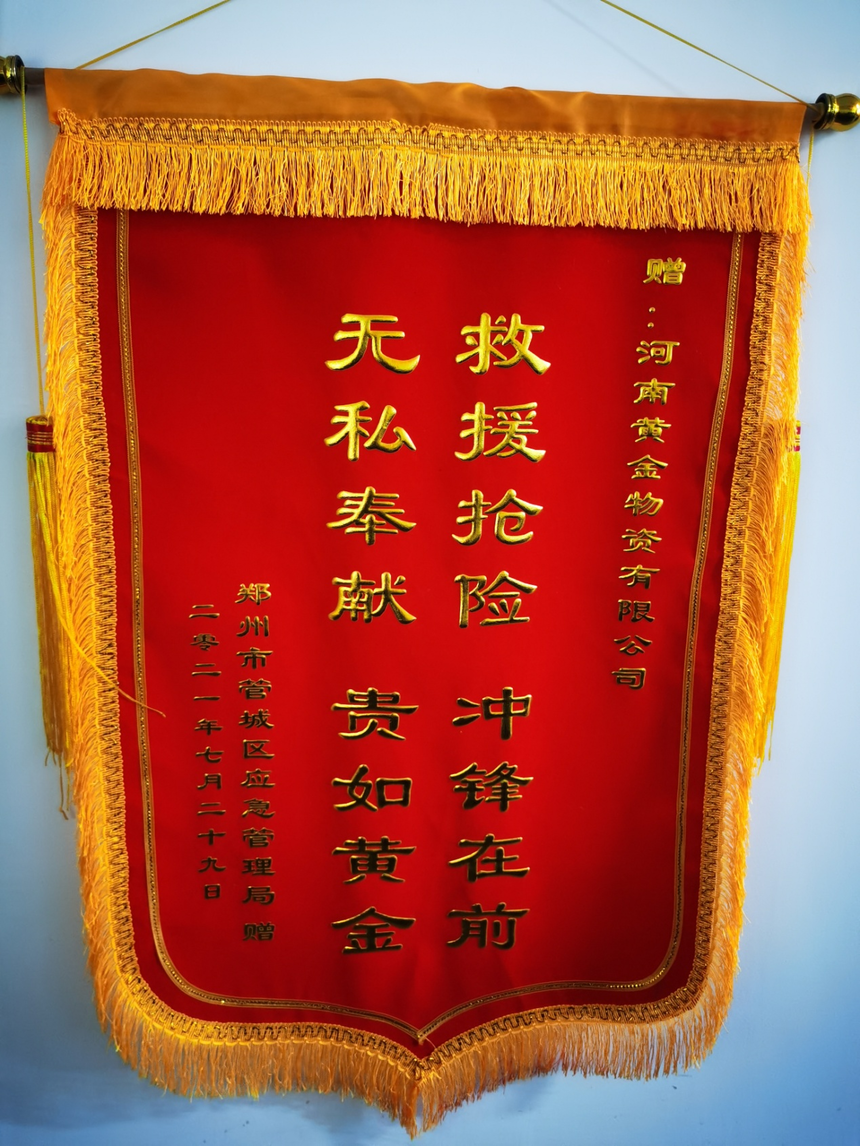 赠：河南黄金物资有限公司
救援抢险 冲锋在前
无私奉献 贵如黄金
郑州市管城区应急管理局 赠
二零二一年七月二十九日